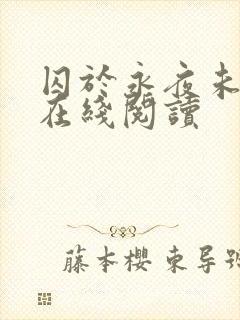 囚於永夜未
在綫閱讀
藤本櫻 東导